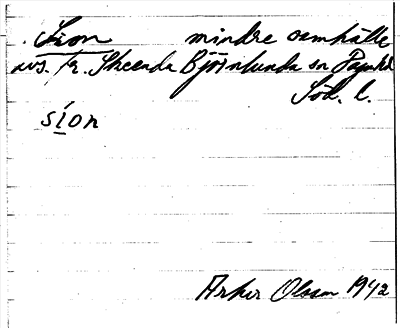 Sion mindre samhälle
avs. fr. Skeenda Björnlunda sn
Söd. l.
síon
Arker Olsson 1942